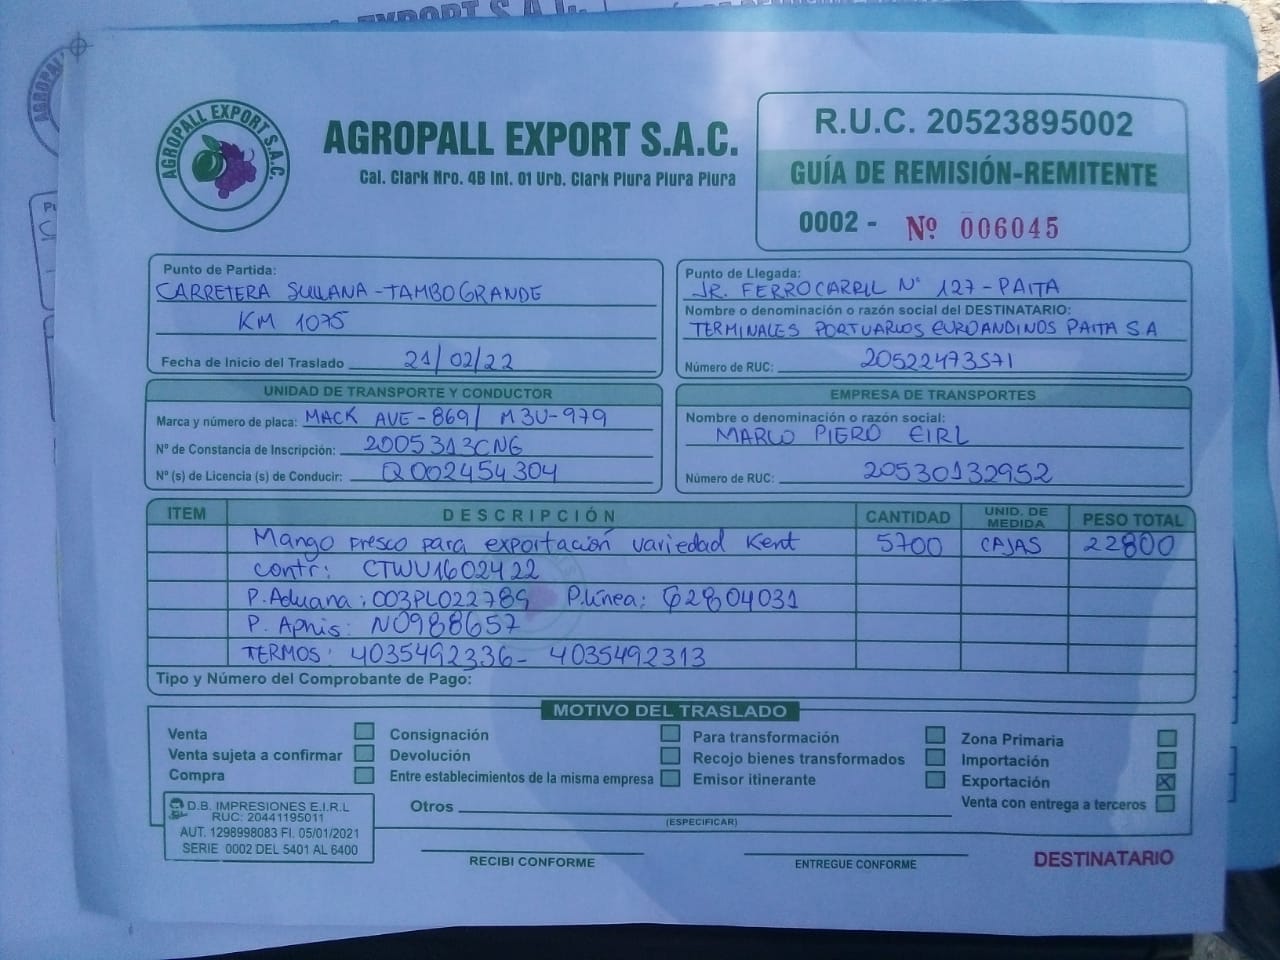 AGROPALL EXPORT S.A.C.
AGROPALL EXPORT S.A.C.
Cal. Clark Nro. 4B Int. 01 Urb. Clark Piura Piura Piura
R.U.C. 20523895002
GUÍA DE REMISIÓN-REMITENTE
0002 - Nº 006045
Punto de Partida:
CARRETERA SULLANA-TAMBOGRANDE
KM 1075
Fecha de Inicio del Traslado 21/02/22
Punto de Llegada:
JR. FERROCARRIL N° 127-PAITA
Nombre o denominación o razón social del DESTINATARIO:
TERMINALES PORTUARIOS EUROANDINOS PAITA SA
Número de RUC: 20522473571
UNIDAD DE TRANSPORTE Y CONDUCTOR
Marca y número de placa: MACK AVE-869/ M3U-979
Nº de Constancia de Inscripción: 2005313CNG
Nº (s) de Licencia (s) de Conducir: Q002454304
EMPRESA DE TRANSPORTES
Nombre o denominación o razón social:
MARCO PIERO EIRL
Número de RUC: 20530132952
ITEM DESCRIPCIÓN CANTIDAD UNID. DE MEDIDA PESO TOTAL
Mango fresco para exportación variedad Kent 5700 CAJAS 22800
contr: CTWU1602422
P. Aduana: 003PL022789 P.línea: 02804031
P. Aphis: N0988657
TERMOS: 4035492336- 4035492313
Tipo y Número del Comprobante de Pago:
MOTIVO DEL TRASLADO
Venta
Venta sujeta a confirmar
Compra
Consignación
Devolución
Entre establecimientos de la misma empresa
Para transformación
Recojo bienes transformados
Emisor itinerante
Zona Primaria
Importación
Exportación X
Venta con entrega a terceros
Otros
(ESPECIFICAR)
D.B. IMPRESIONES E.I.R.L
RUC: 20441195011
AUT. 1298998083 FI. 05/01/2021
SERIE 0002 DEL 5401 AL 6400
RECIBI CONFORME
ENTREGUE CONFORME
DESTINATARIO